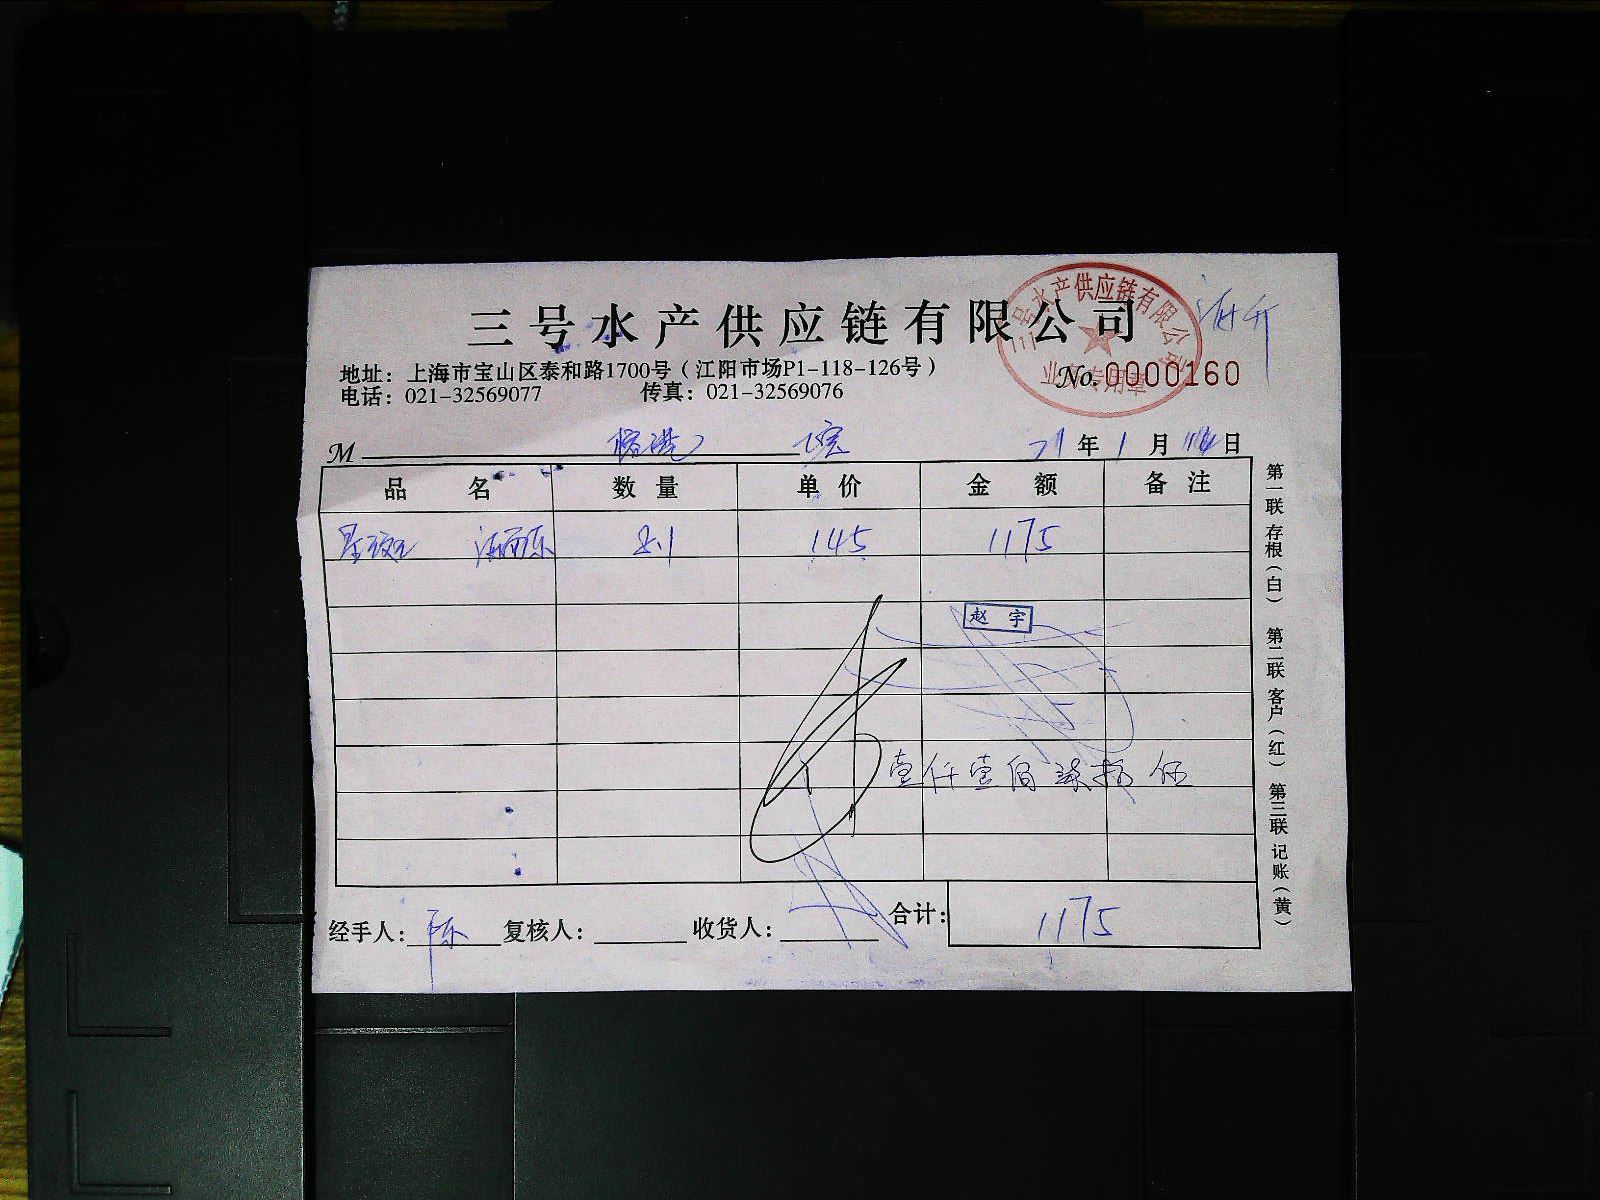 三号水产供应链有限公司
三号水产供应链有限公司
业务专用章
地址：上海市宝山区泰和路1700号（江阳市场P1-118-126号）
No.0000160
电话：021-32569077 传真：021-32569076
M 21年1月 日
品名 数量 单价 金额 备注
8.1 145 1175
赵宇
壹仟壹佰柒拾伍
经手人：陈 复核人： 收货人： 合计：1175
第一联 存根（白） 第二联 客户（红） 第三联 记账（黄）